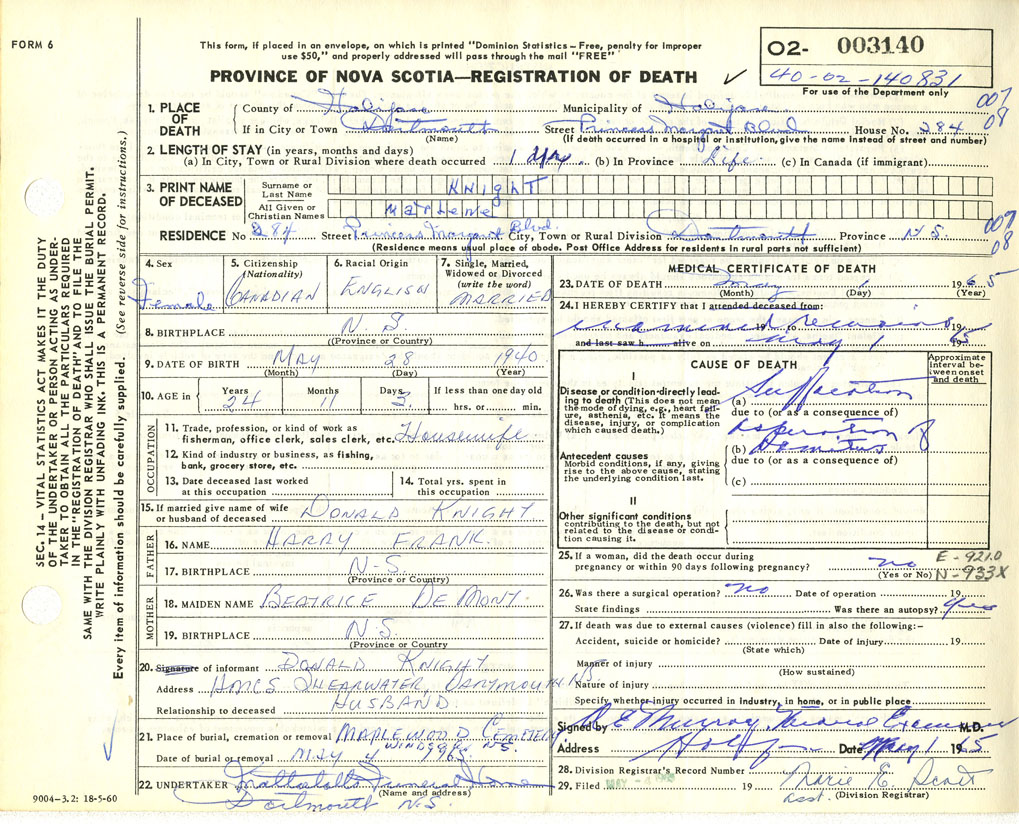 FORM 6
This form, if placed in an envelope, on which is printed "Dominion Statistics – Free, penalty for improper
use $50," and properly addressed will pass through the mail "FREE"
PROVINCE OF NOVA SCOTIA—REGISTRATION OF DEATH ✓
02- 003140
40-02-140831
For use of the Department only
007
08
SEC. 14 – VITAL STATISTICS ACT MAKES IT THE DUTY
OF THE UNDERTAKER OR PERSON ACTING AS UNDER-
TAKER TO OBTAIN ALL THE PARTICULARS REQUIRED
IN THE "REGISTRATION OF DEATH" AND TO FILE THE
SAME WITH THE DIVISION REGISTRAR WHO SHALL ISSUE THE BURIAL PERMIT.
WRITE PLAINLY WITH UNFADING INK. THIS IS A PERMANENT RECORD.
Every item of Information should be carefully supplied. (See reverse side for instructions.)
1. PLACE OF DEATH
County of Halifax Municipality of Halifax
If in City or Town Dartmouth Street Princess Margret Blvd House No. 284
(Name) (If death occurred in a hospital or institution, give the name instead of street and number)
2. LENGTH OF STAY (in years, months and days)
(a) In City, Town or Rural Division where death occurred 1 day (b) In Province Life (c) In Canada (if immigrant)
3. PRINT NAME OF DECEASED
Surname or Last Name KNIGHT
All Given or Christian Names Marlene
RESIDENCE No 284 Street Princess Margret Blvd. City, Town or Rural Division Dartmouth Province N.S.
007
08
(Residence means usual place of abode. Post Office Address for residents in rural parts not sufficient)
4. Sex Female
5. Citizenship (Nationality) CANADIAN
6. Racial Origin ENGLISH
7. Single, Married, Widowed or Divorced (write the word) MARRIED
8. BIRTHPLACE N S.
(Province or Country)
9. DATE OF BIRTH MAY 28 1940
(Month) (Day) (Year)
10. AGE in Years 24 Months 11 Days 3 If less than one day old hrs. or min.
OCCUPATION
11. Trade, profession, or kind of work as
fisherman, office clerk, sales clerk, etc. Housewife
12. Kind of industry or business, as fishing,
bank, grocery store, etc.
13. Date deceased last worked at this occupation
14. Total yrs. spent in this occupation
15. If married give name of wife
or husband of deceased DONALD KNIGHT
FATHER
16. NAME HARRY FRANK
17. BIRTHPLACE N-S
(Province or Country)
MOTHER
18. MAIDEN NAME BEATRICE DE MONT
19. BIRTHPLACE N.S.
(Province or Country
20. Signature of informant DONALD KNIGHT
Address HMCS SHEARWATER, DARTMOUTH NS.
Relationship to deceased HUSBAND
21. Place of burial, cremation or removal MAPLEWOOD CEMETERY
WINDSOR N.S.
Date of burial or removal MAY 4 1965
22. UNDERTAKER Funeral Home
(Name and address)
Dartmouth N.S.
9004-3.2: 18-5-60
MEDICAL CERTIFICATE OF DEATH
23. DATE OF DEATH May 1 1965
(Month) (Day) (Year)
24. I HEREBY CERTIFY that I attended deceased from:
examined 19 to remains 19
and last saw h alive on May 1 1965
CAUSE OF DEATH
Approximate
Interval be-
tween onset
and death
I
Disease or condition directly lead-
ing to death (This does not mean
the mode of dying, e.g., heart fail-
ure, asthenia, etc. It means the
disease, injury, or complication
which caused death.)
(a) Suffocation
due to (or as a consequence of)
aspiration of
(b) Vomitus
due to (or as a consequence of)
(c)
Antecedent causes
Morbid conditions, if any, giving
rise to the above cause, stating
the underlying condition last.
II
Other significant conditions
contributing to the death, but not
related to the disease or condi-
tion causing it.
25. If a woman, did the death occur during
pregnancy or within 90 days following pregnancy? no
(Yes or No)
E-921.0
N-933X
26. Was there a surgical operation? no Date of operation 19
State findings Was there an autopsy? yes
27. If death was due to external causes (violence) fill in also the following:–
Accident, suicide or homicide? Date of injury 19
(State which)
Manner of injury
(How sustained)
Nature of injury
Specify whether injury occurred in Industry, in home, or in public place
Signed by D E Murray, Medical Examiner M.D.
Address Halifax Date May 1 1965
28. Division Registrar's Record Number
29. Filed MAY 19 Marie E. Scott
asst. (Division Registrar)